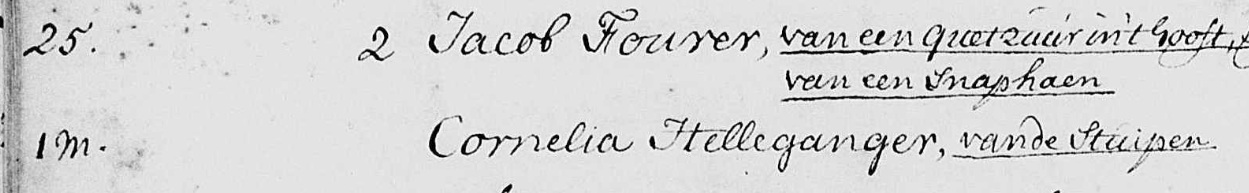 25. 2 Jacob Fourer, van een quetzuir in't hooft,
van een Snaphaen
1 m. Cornelia Helleganger, van de Stuipen